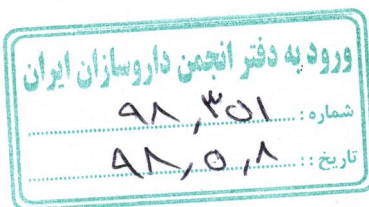 ورود به دفتر انجمن داروسازان ایران
شماره : ۹۸,۳۵۱
تاریخ : ۹۸,۵,۸